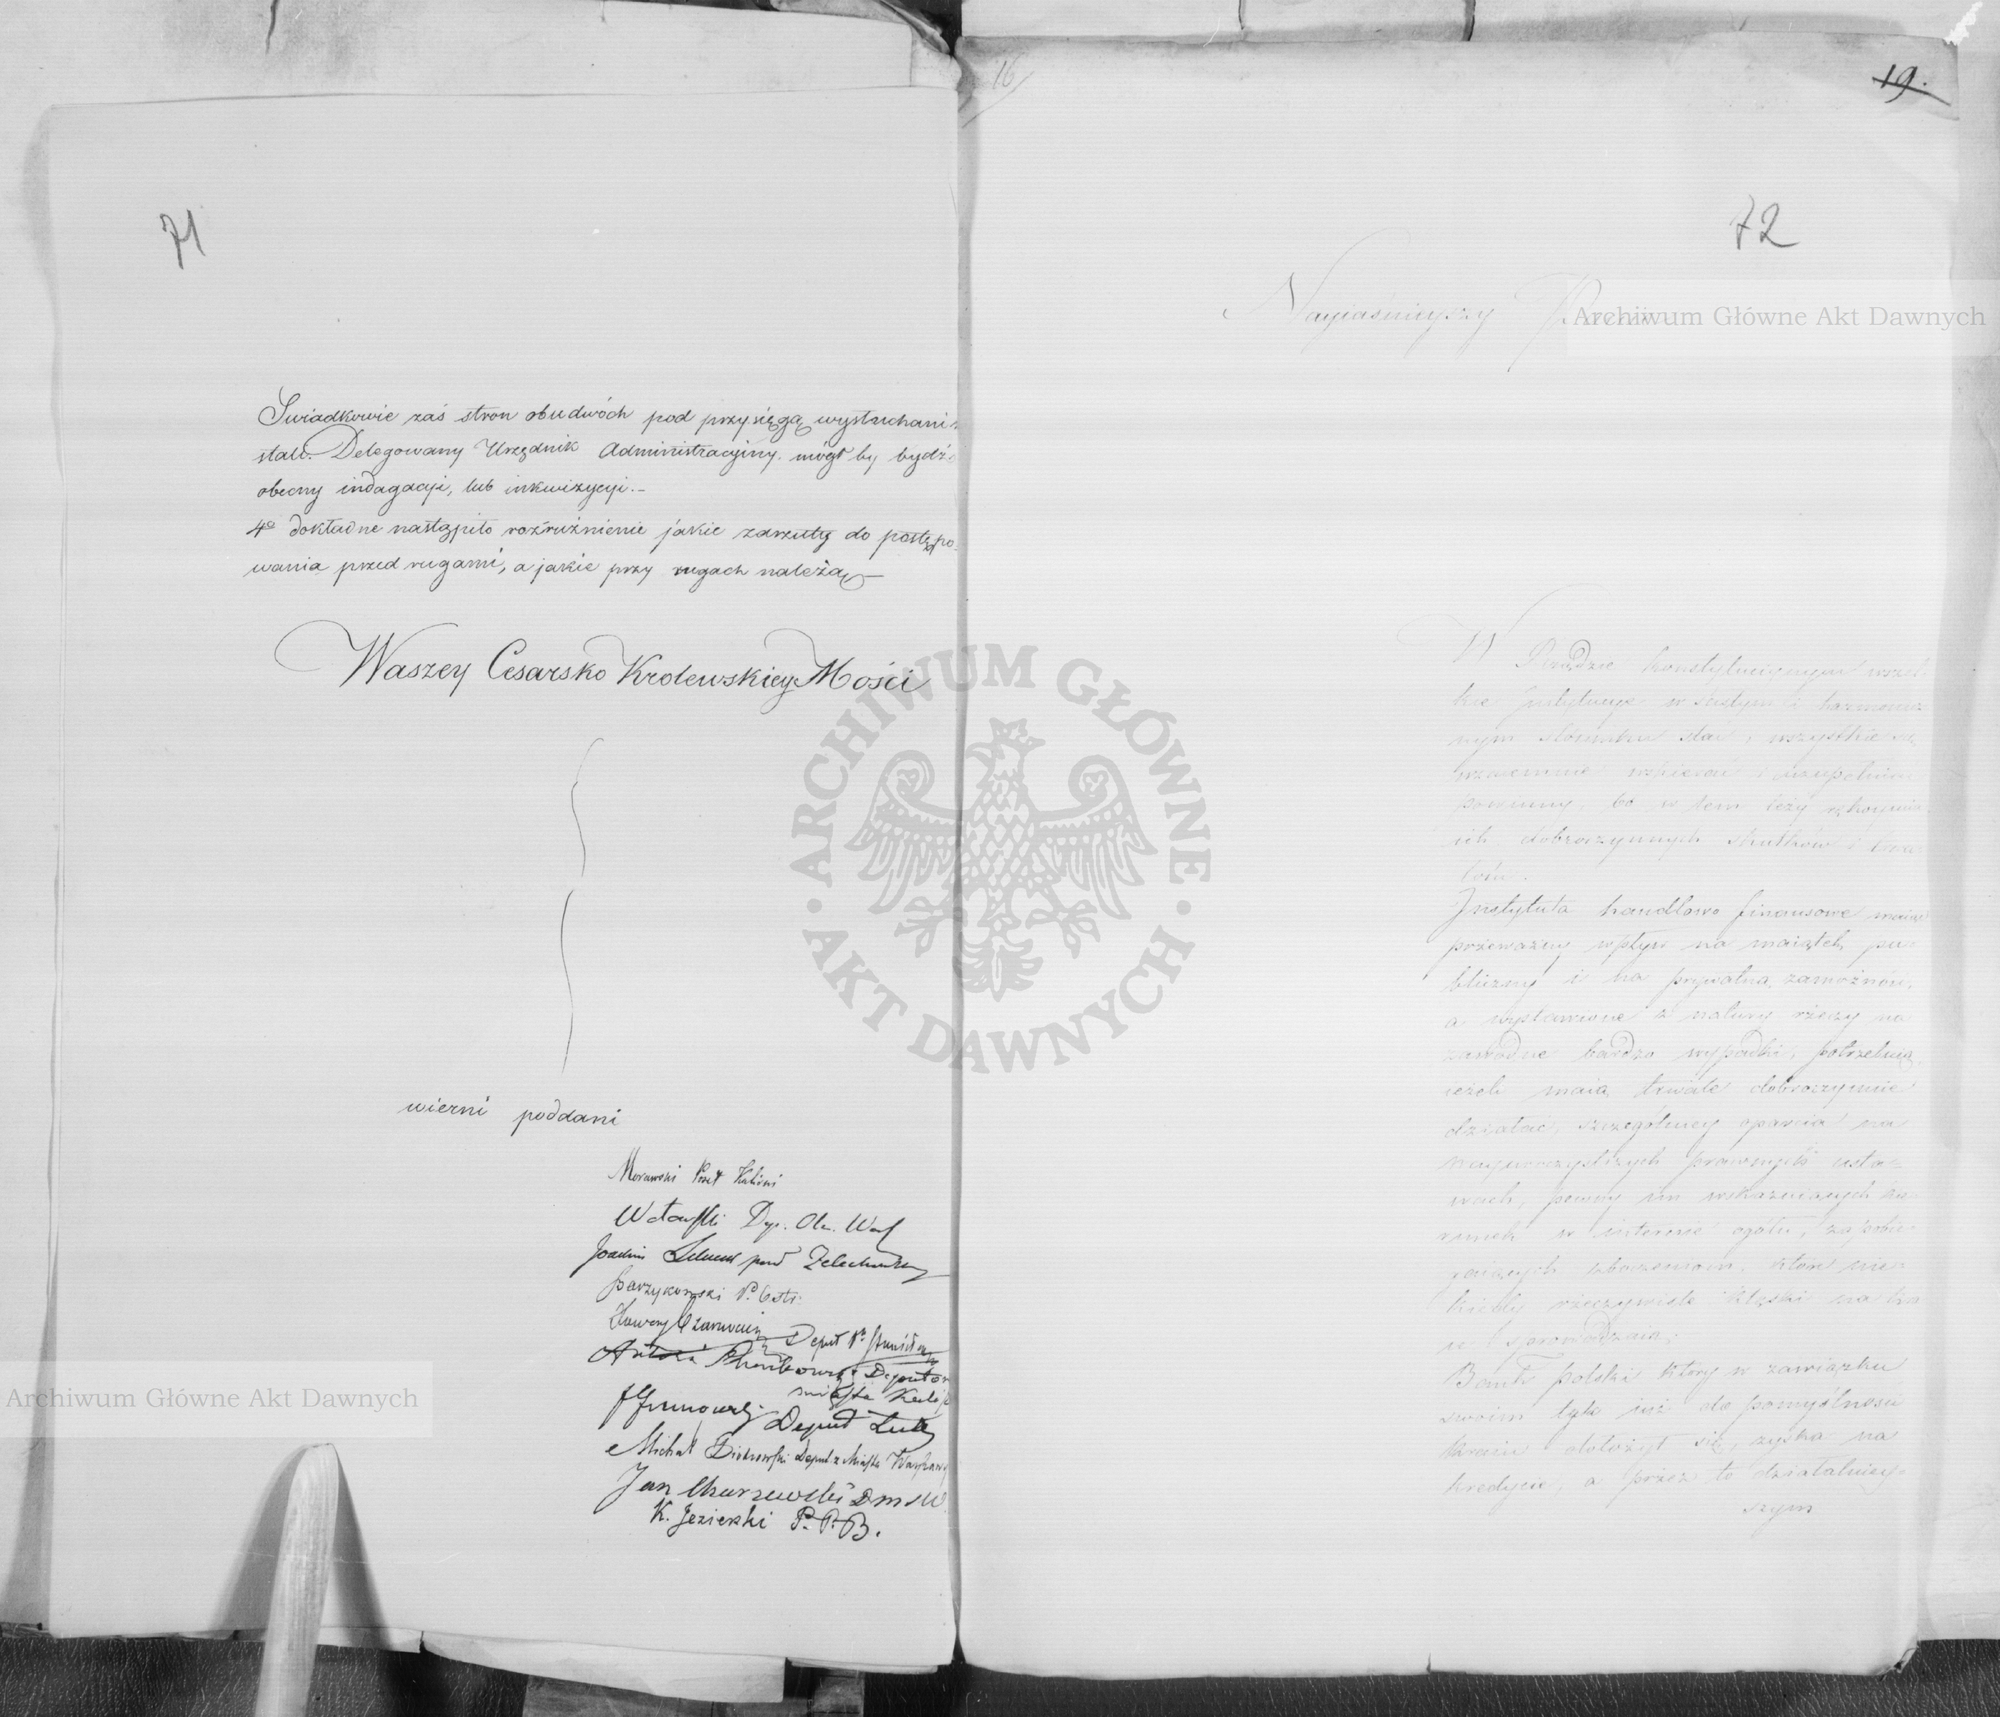 71
Swiadkowie zaś stron obudwóch pod przysięgą wysłuchani
stali. Delegowany Urzędnik Administracyiny mógł by bydź
obecny indagacyi, lub inkwizycyi.
4o dokładne nastąpiło rozróżnienie jakie zarzuty do postępo-
wania przed rugami, a jakie przy rugach należą
Waszey Cesarsko Krolewskiey Mości
wierni poddani
Morawski Poseł Kaliski
Dep.
Joachim
Barzykowski P. Ostr:
Xawery Czarnocki Deput
Deputow
miasta
Deput
Michał Deput z Miasta Warszawy
Jan
K. Jezierski P. P. B.
16
19.
72
Nayiaśnieyszy
W Rządzie konstytucyinym wszel-
kie w ścisłym i harmonicz
nym stosunku stać, wszystkie się
wzaiemnie wspierać i uzupełniać
powinny, bo w tem leży rękoymia
ich dobroczynnych skutków i trwa-
łości.
Instytuta handlowo finansowe maiąc
przeważny wpływ na maiątek pu-
bliczny i na prywatną zamożność,
a wystawione z natury rzeczy na
zawodne bardzo wypadki, potrzebuią,
ieżeli maią trwale dobroczynnie
działać, szczególniey oparcia na
nayuroczystszych prawnych usta-
wach, pewny im wskazuiących kie-
runek w interesie ogółu, zapobie-
gaiących zboczeniom, które nie-
kiedy rzeczywiste klęski na kra
ie sprowadzaią.
Bank polski który w zawiązku
swoim tyle iuż do pomyślności
kraiu dołożył się, zyska na
kredycie, a przez to działalniey-
szym
Archiwum Główne Akt Dawnych
Archiwum Główne Akt Dawnych
ARCHIWUM GŁÓWNE AKT DAWNYCH